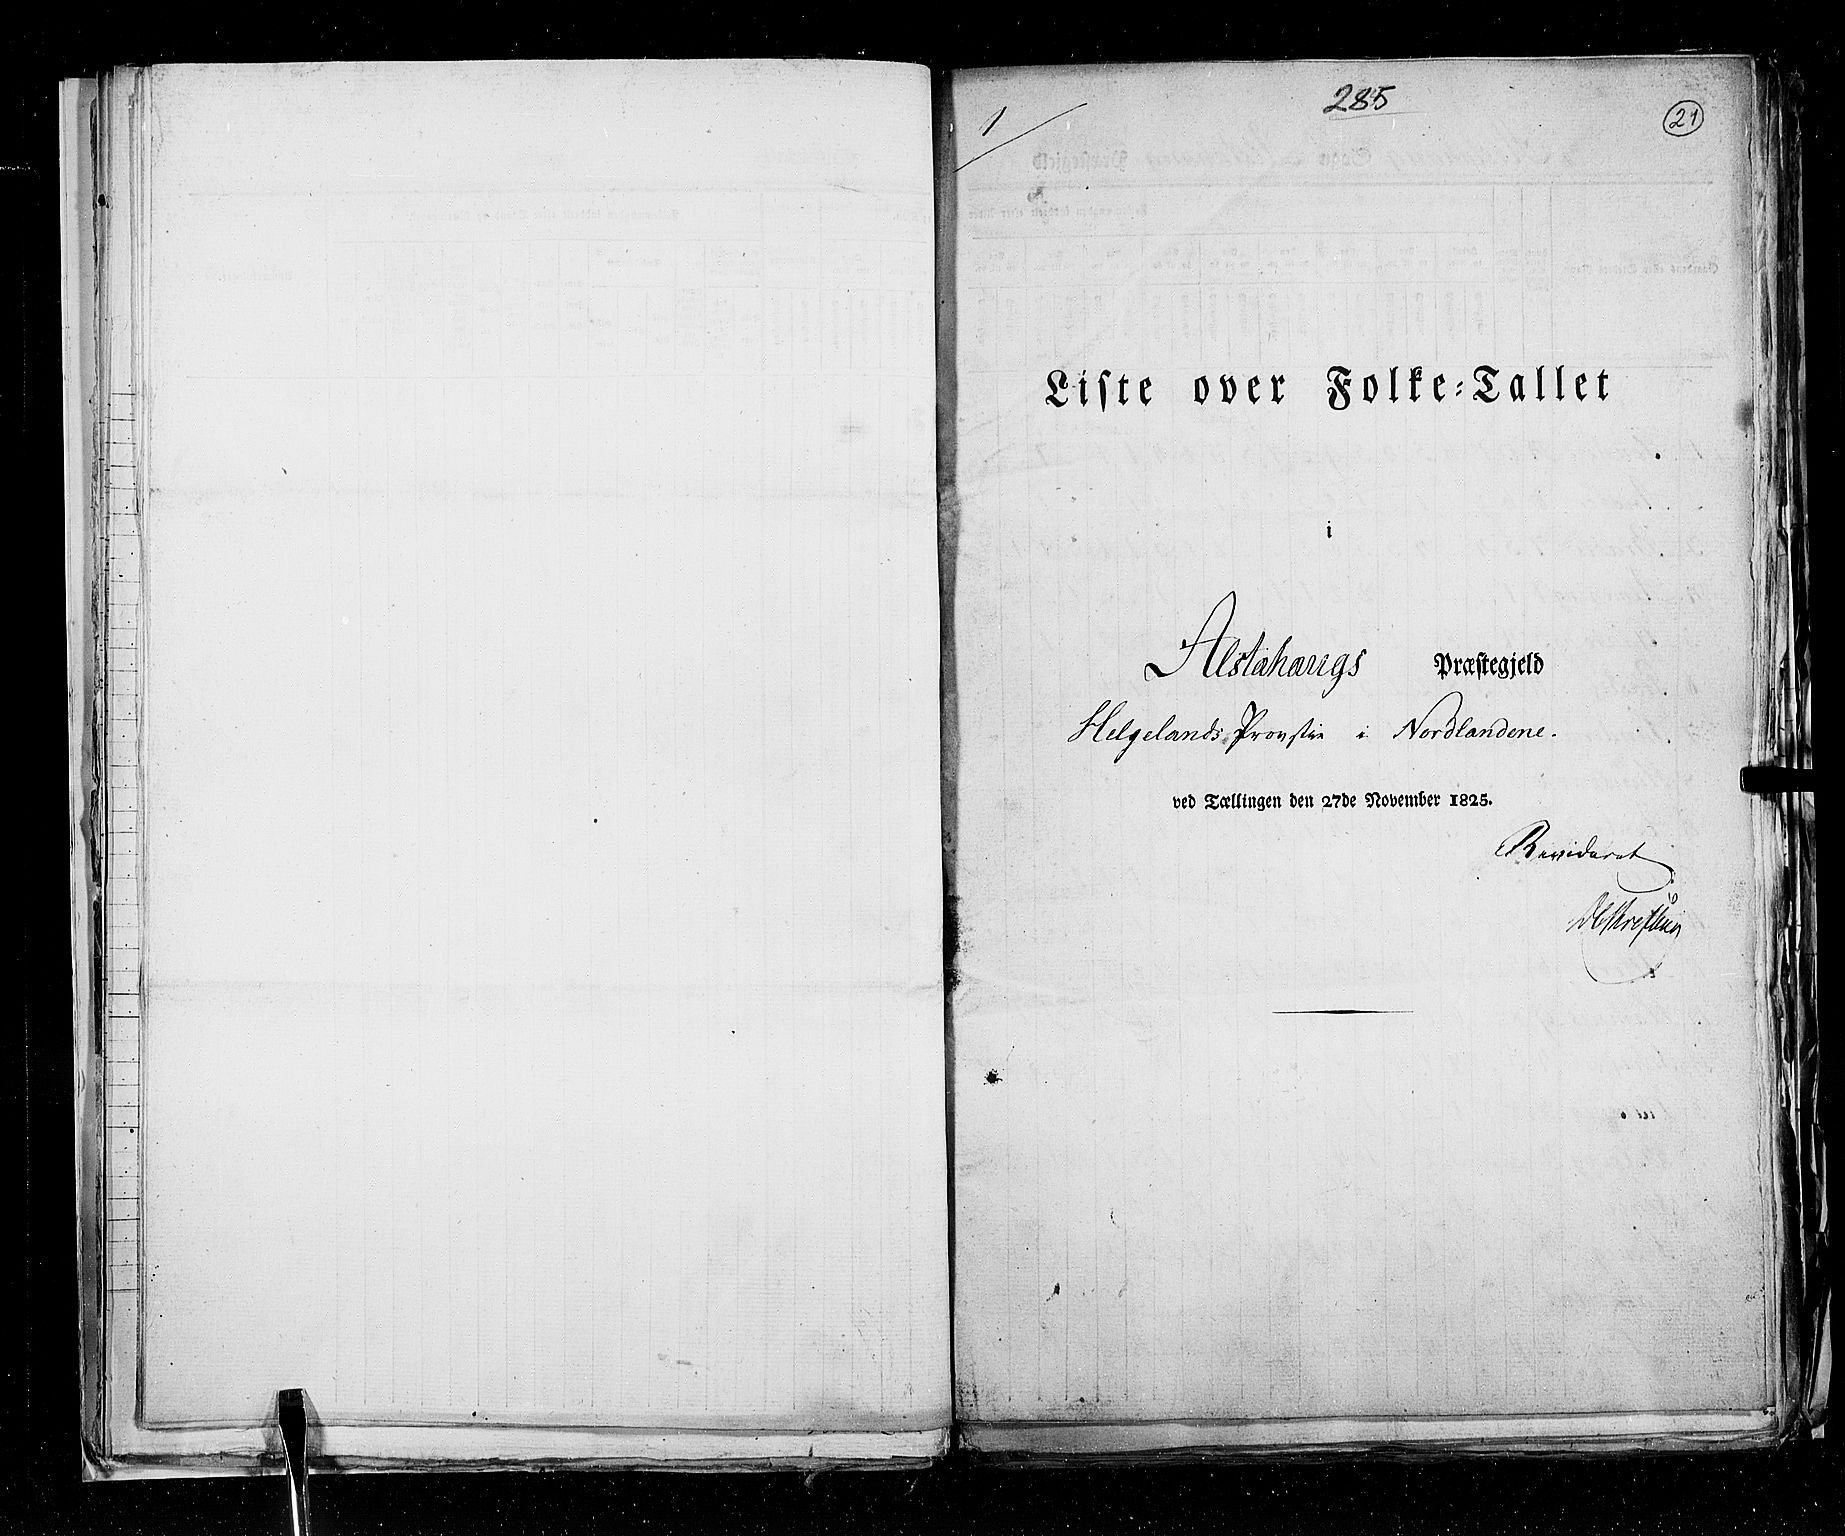 1
285
21
Liste over Folke=Tallet
i
Alstahaugs Præstegjeld
Helgelands Provstie i Nordlandene.
ved Tællingen den 27de November 1825.
Revideret